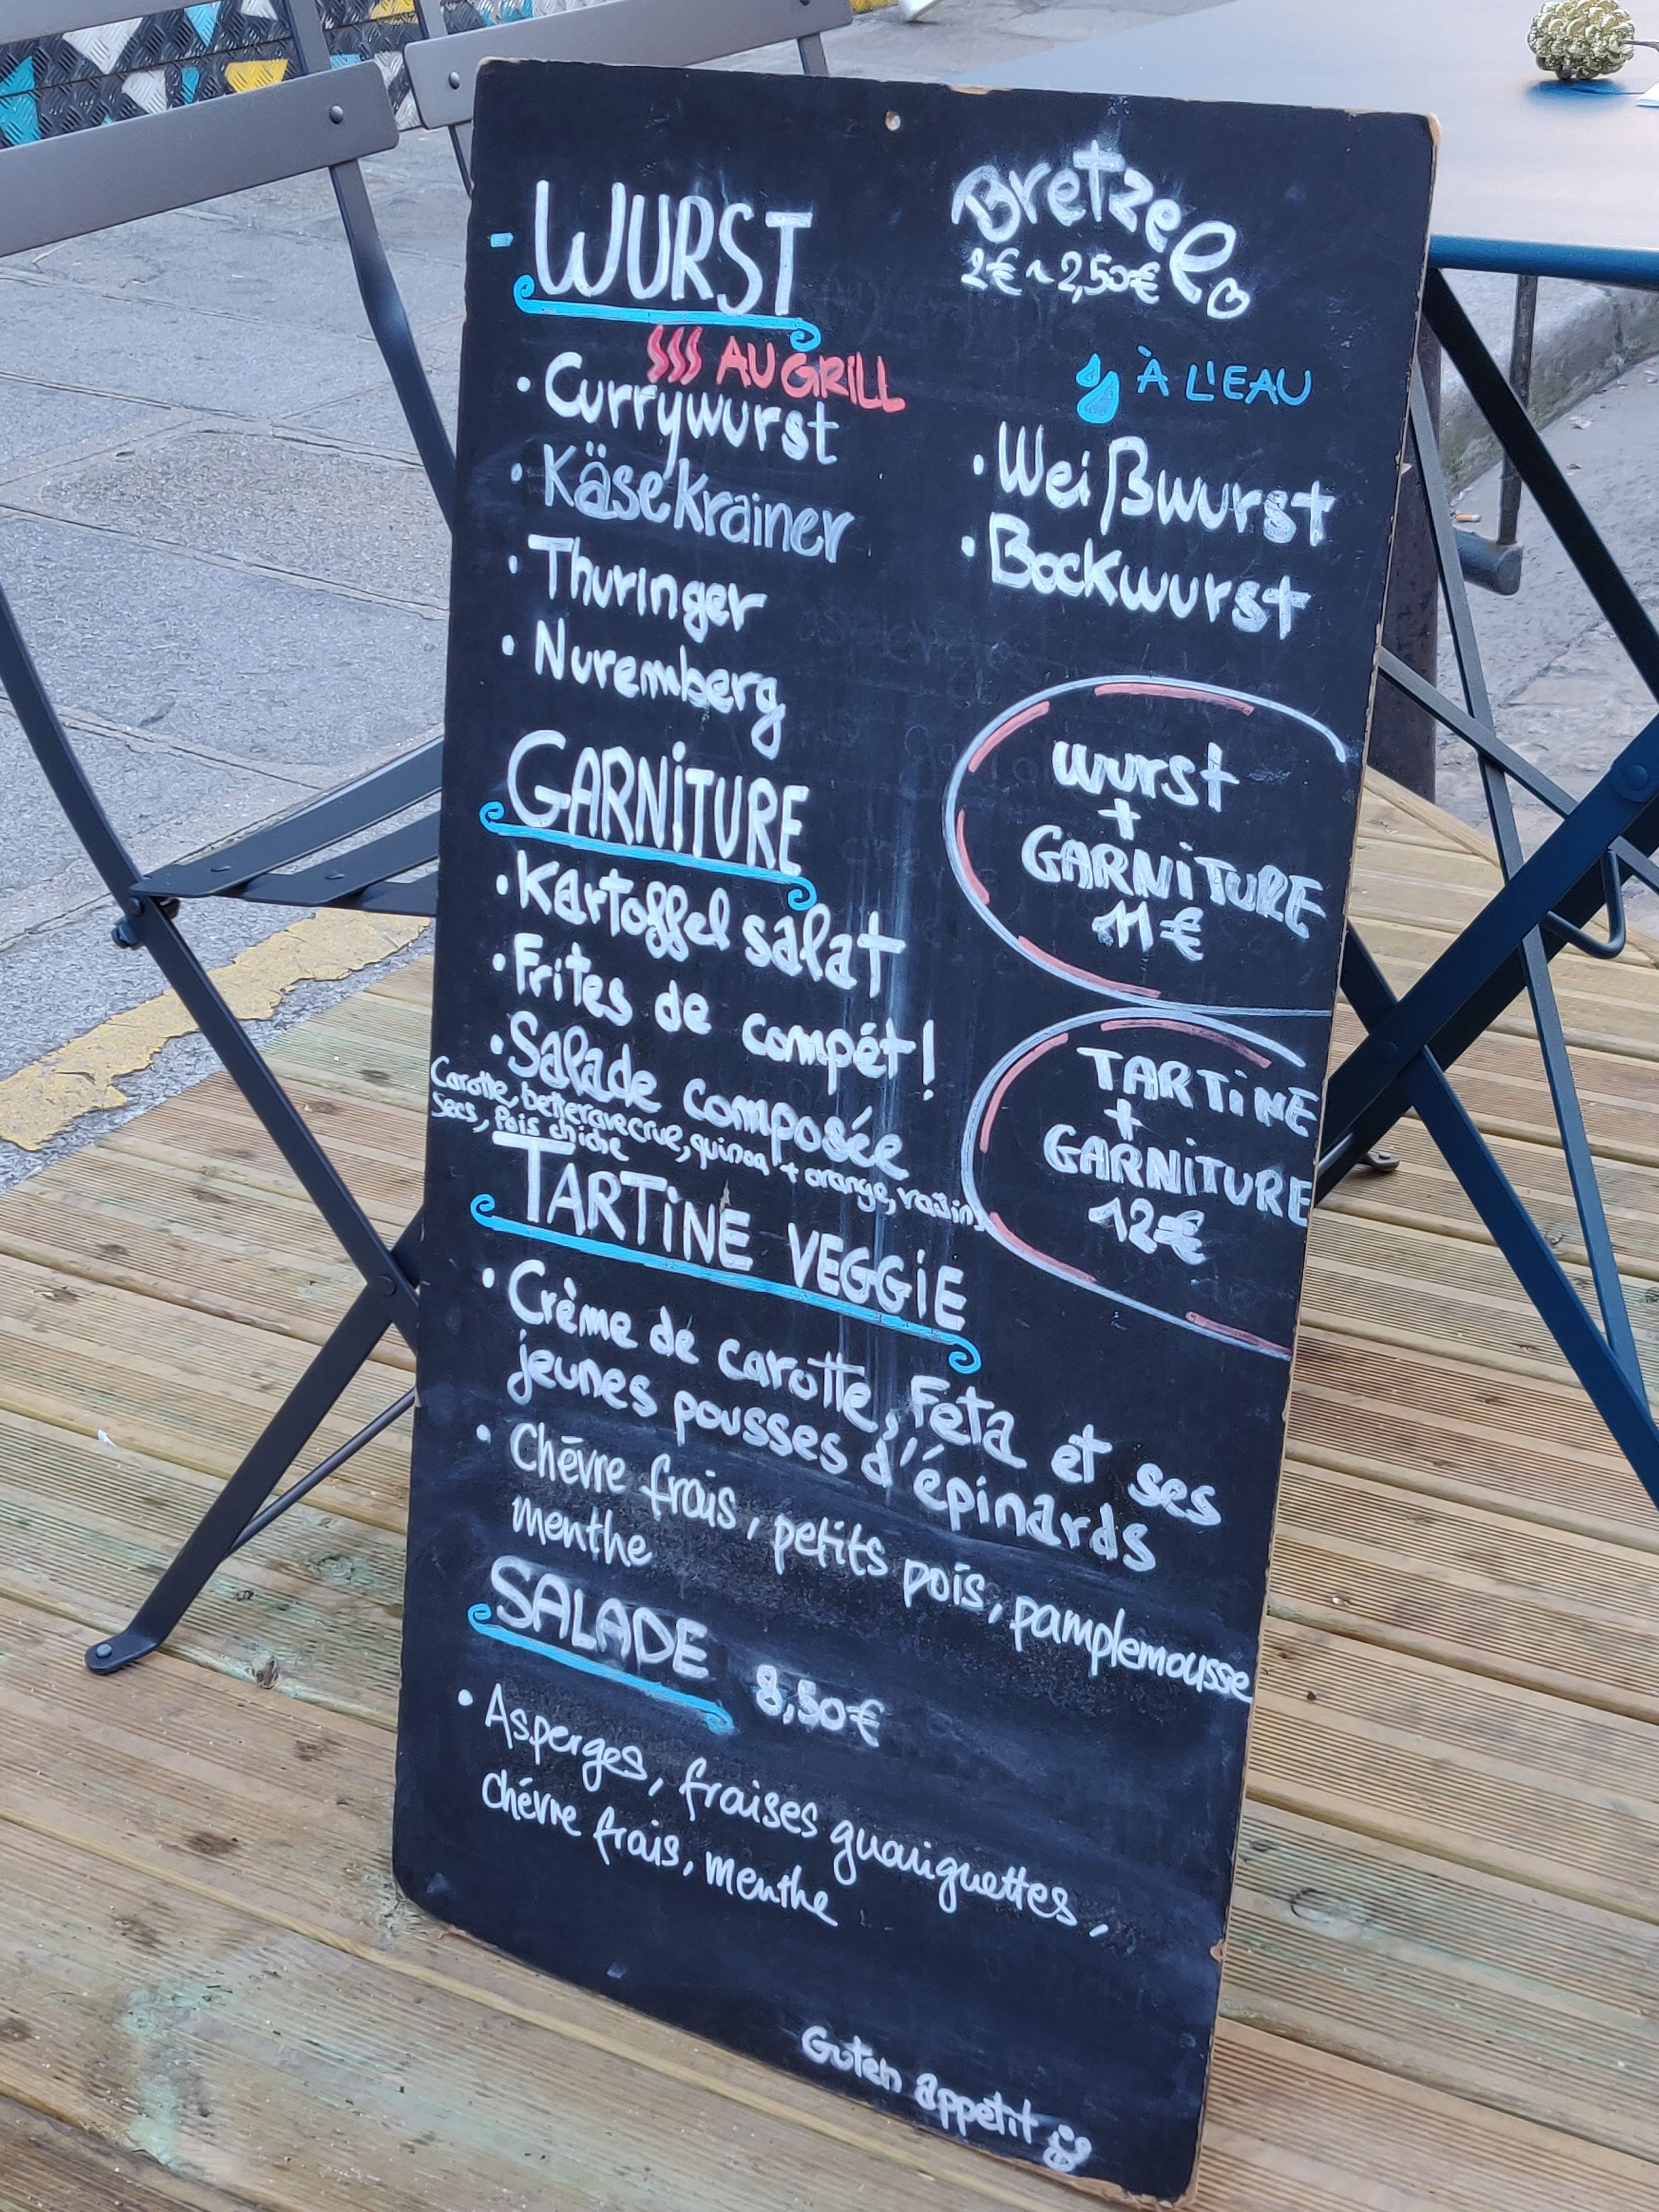 - WURST
Bretzel
2€ ~ 2,50€
AU GRILL
• Currywurst
• Käsekrainer
• Thuringer
• Nuremberg
À L'EAU
• Weißwurst
• Bockwurst
GARNiTURE
• Kartoffel salat
• Frites de compét!
• Salade composée
Carotte, betterave crue, quinoa + orange, raisins
secs, Pois chiche
wurst
+
GARNiTURE
11€
TARTiNE
+
GARNiTURE
12€
TARTiNE VEGGiE
• Crème de carotte, Feta et ses
jeunes pousses d'épinards
• Chévre frais, petits pois, pamplemousse
menthe
SALADE 8,50€
• Asperges, fraises guariguettes,
chévre frais, menthe
Guten appetit